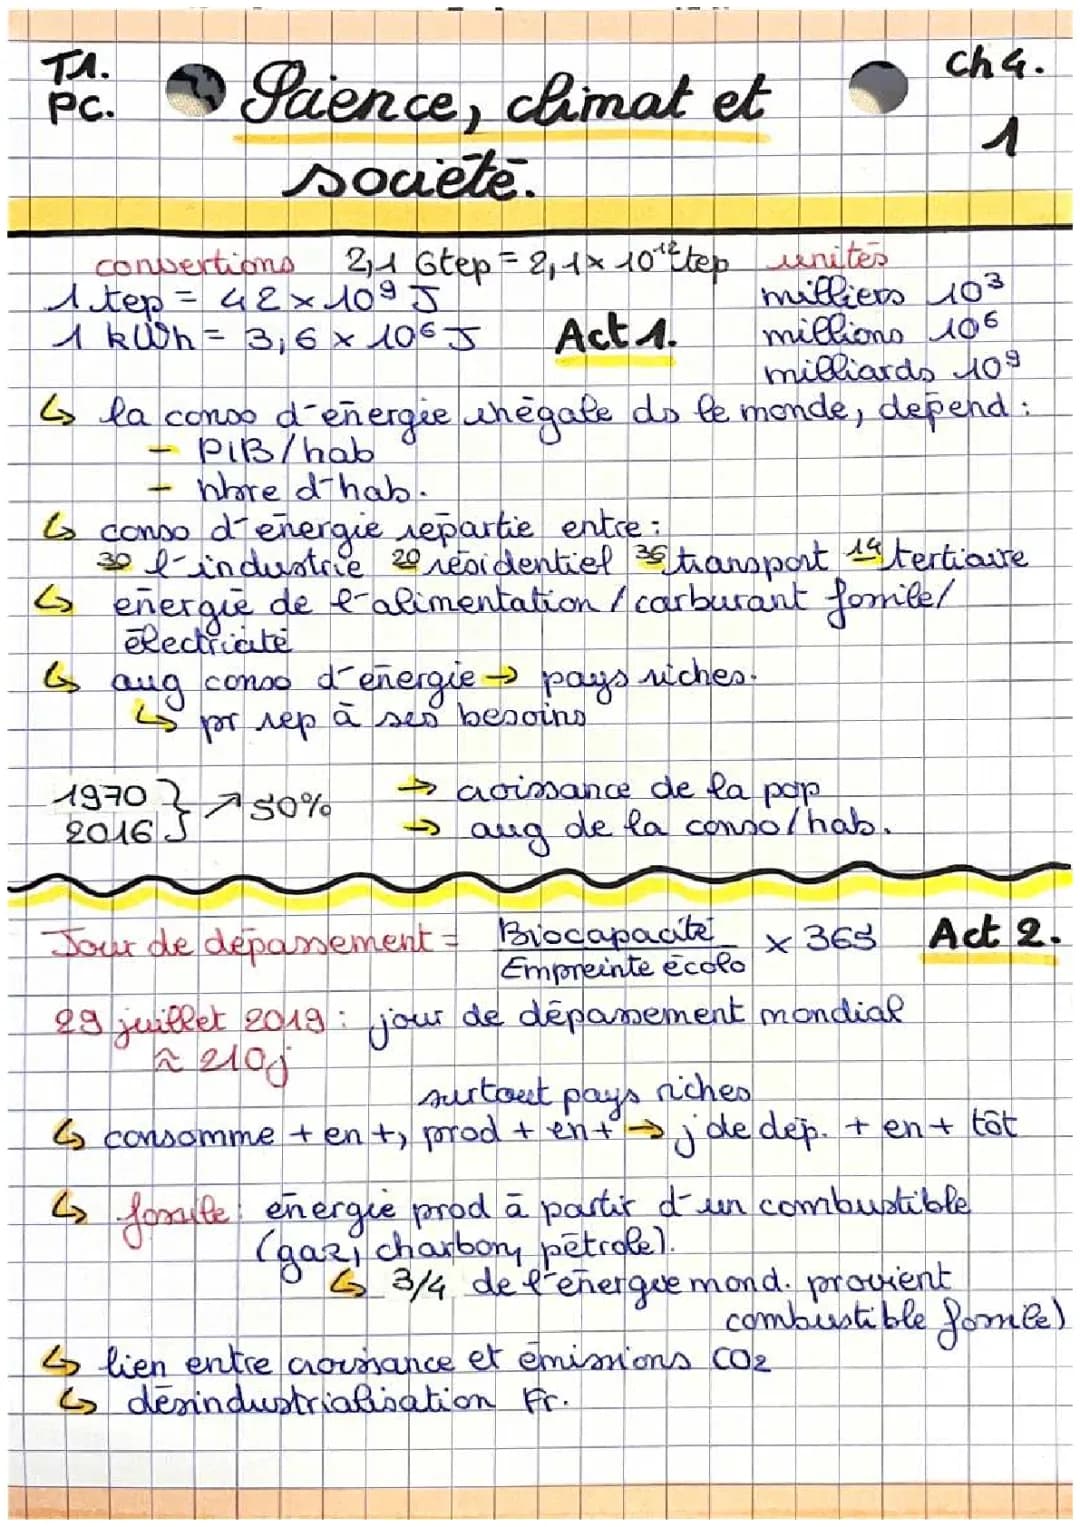 T1.
PC.
Science, climat et
société.
Ch 4.
1
convertions
2,1 Gtep = 2,1 x 10¹² tep
unités
1 tep = 42 x 10⁹ J
milliers 10³
1 kWh = 3,6 x 10⁶ J
Act 1.
millions 10⁶
milliards 10⁹
↳ la conso d'énergie inégale ds le monde, dépend :
- PIB/hab
- nbre d'hab.
↳ conso d'énergie répartie entre :
30 l'industrie 20 résidentiel 36 transport 14 tertiaire
↳ énergie de l'alimentation / carburant fossile/
électricité
↳ aug conso d'énergie → pays riches.
↳ pr rep à ses besoins
1970
2016
} ↗ 50%
→ croissance de la pop
→ aug de la conso/hab.
Jour de dépassement = Biocapacité / Empreinte écolo x 365
Act 2.
29 juillet 2019 : jour de dépassement mondial
≈ 210j
surtout pays riches
↳ consomme + en +, prod + en + → j de dép. + en + tôt
↳ fossile : énergie prod à partir d'un combustible
(gaz, charbon, pétrole).
↳ 3/4 de l'énergie mond. provient
combustible fossile)
↳ lien entre croissance et émissions CO2
↳ désindustrialisation Fr.